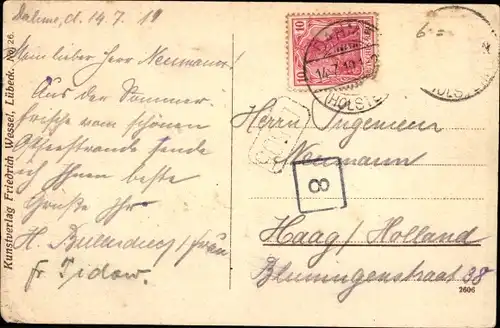 Dahme, d. 14.7.19
Mein lieber Herr Neumann!
Aus der Sommer-
frische vom schönen
Ostseestrande sende
ich Ihnen beste
Grüße Ihr
H. / Frau
Fr. Tidow.
Kunstverlag Friedrich Wessel, Lübeck. No 26.
10 10
14.7.19
(HOLSTE
HOLSTE
Herrn Ingenieur
Neumann
8
Haag / Holland
Blumingenstraat 38
2606